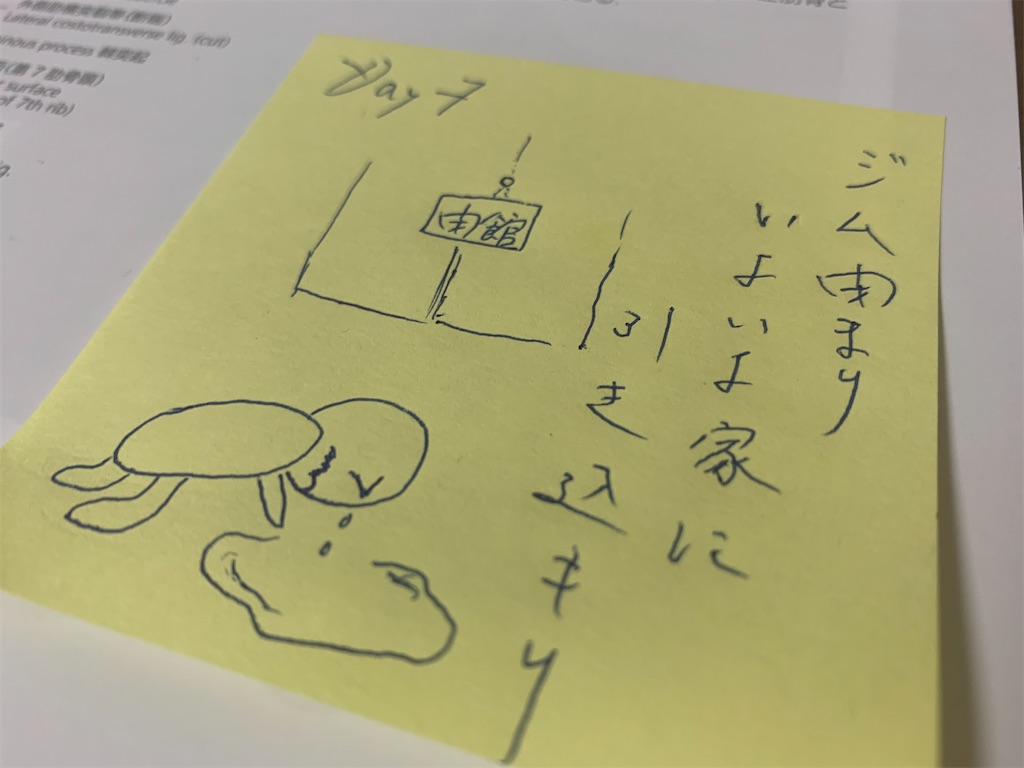 Lateral costotransverse lig. (cut)
inous process 棘突起
(第7肋骨頭)
surface
of 7th rib)
Day 7
閉館
ジム閉まり
いよいよ家に
引き込もり